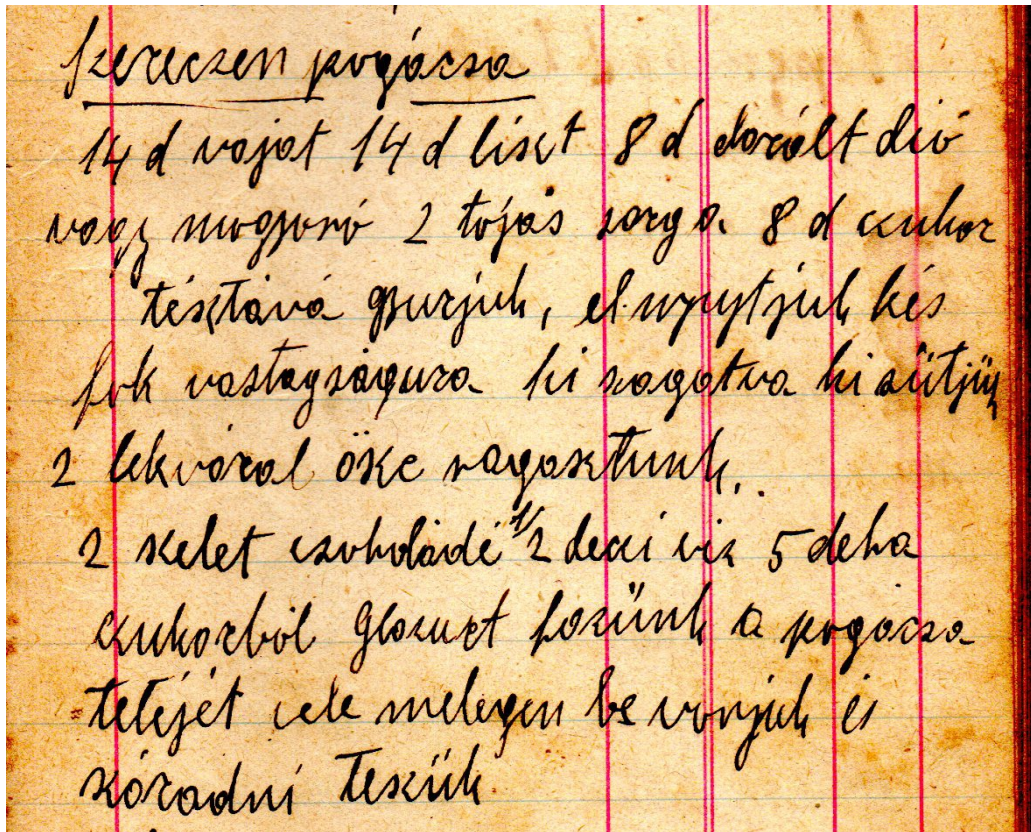 szereczen pogácsa
14 d vajat 14 d liszt 8 d darált dió
vagy mogyoró 2 tojás sarga 8 d cukor
tésztává gyurjuk, el nyujtjuk kés
fok vastagságura ki szagatva ki sütjük
2 lekváral ösze ragasztunk.
2 szelet csokoládé 1/2 deci viz 5 deka
cukorból glazurt fozünk a pogácsa
tetejét vele melegen be vonjuk és
száradni teszük